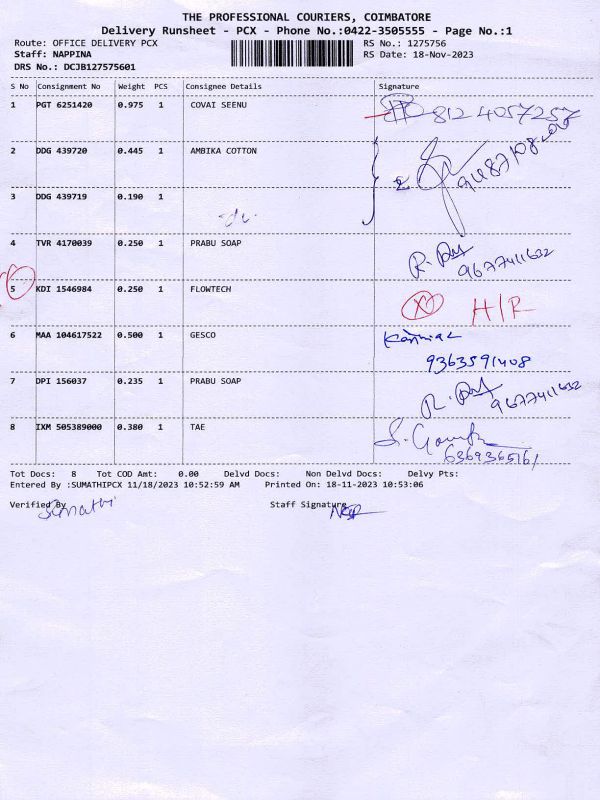 THE PROFESSIONAL COURIERS, COIMBATORE
Delivery Runsheet - PCX - Phone No.:0422-3505555 - Page No.:1
Route: OFFICE DELIVERY PCX RS No.: 1275756
Staff: NAPPINA RS Date: 18-Nov-2023
DRS No.: DCJB127575601
S No Consignment No Weight PCS Consignee Details Signature
1 PGT 6251420 0.975 1 COVAI SEENU 8124057257
2 DDG 439720 0.445 1 AMBIKA COTTON
3 DDG 439719 0.190 1
4 TVR 4170039 0.250 1 PRABU SOAP
9677411632
5 KDI 1546984 0.250 1 FLOWTECH X H/R
6 MAA 104617522 0.500 1 GESCO
9363591408
7 DPI 156037 0.235 1 PRABU SOAP
9677411632
8 IXM 505389000 0.380 1 TAE
6369365161
Tot Docs: 8 Tot COD Amt: 0.00 Delvd Docs: Non Delvd Docs: Delvy Pts:
Entered By :SUMATHIPCX 11/18/2023 10:52:59 AM Printed On: 18-11-2023 10:53:06
Verified By Staff Signature
Sumathi